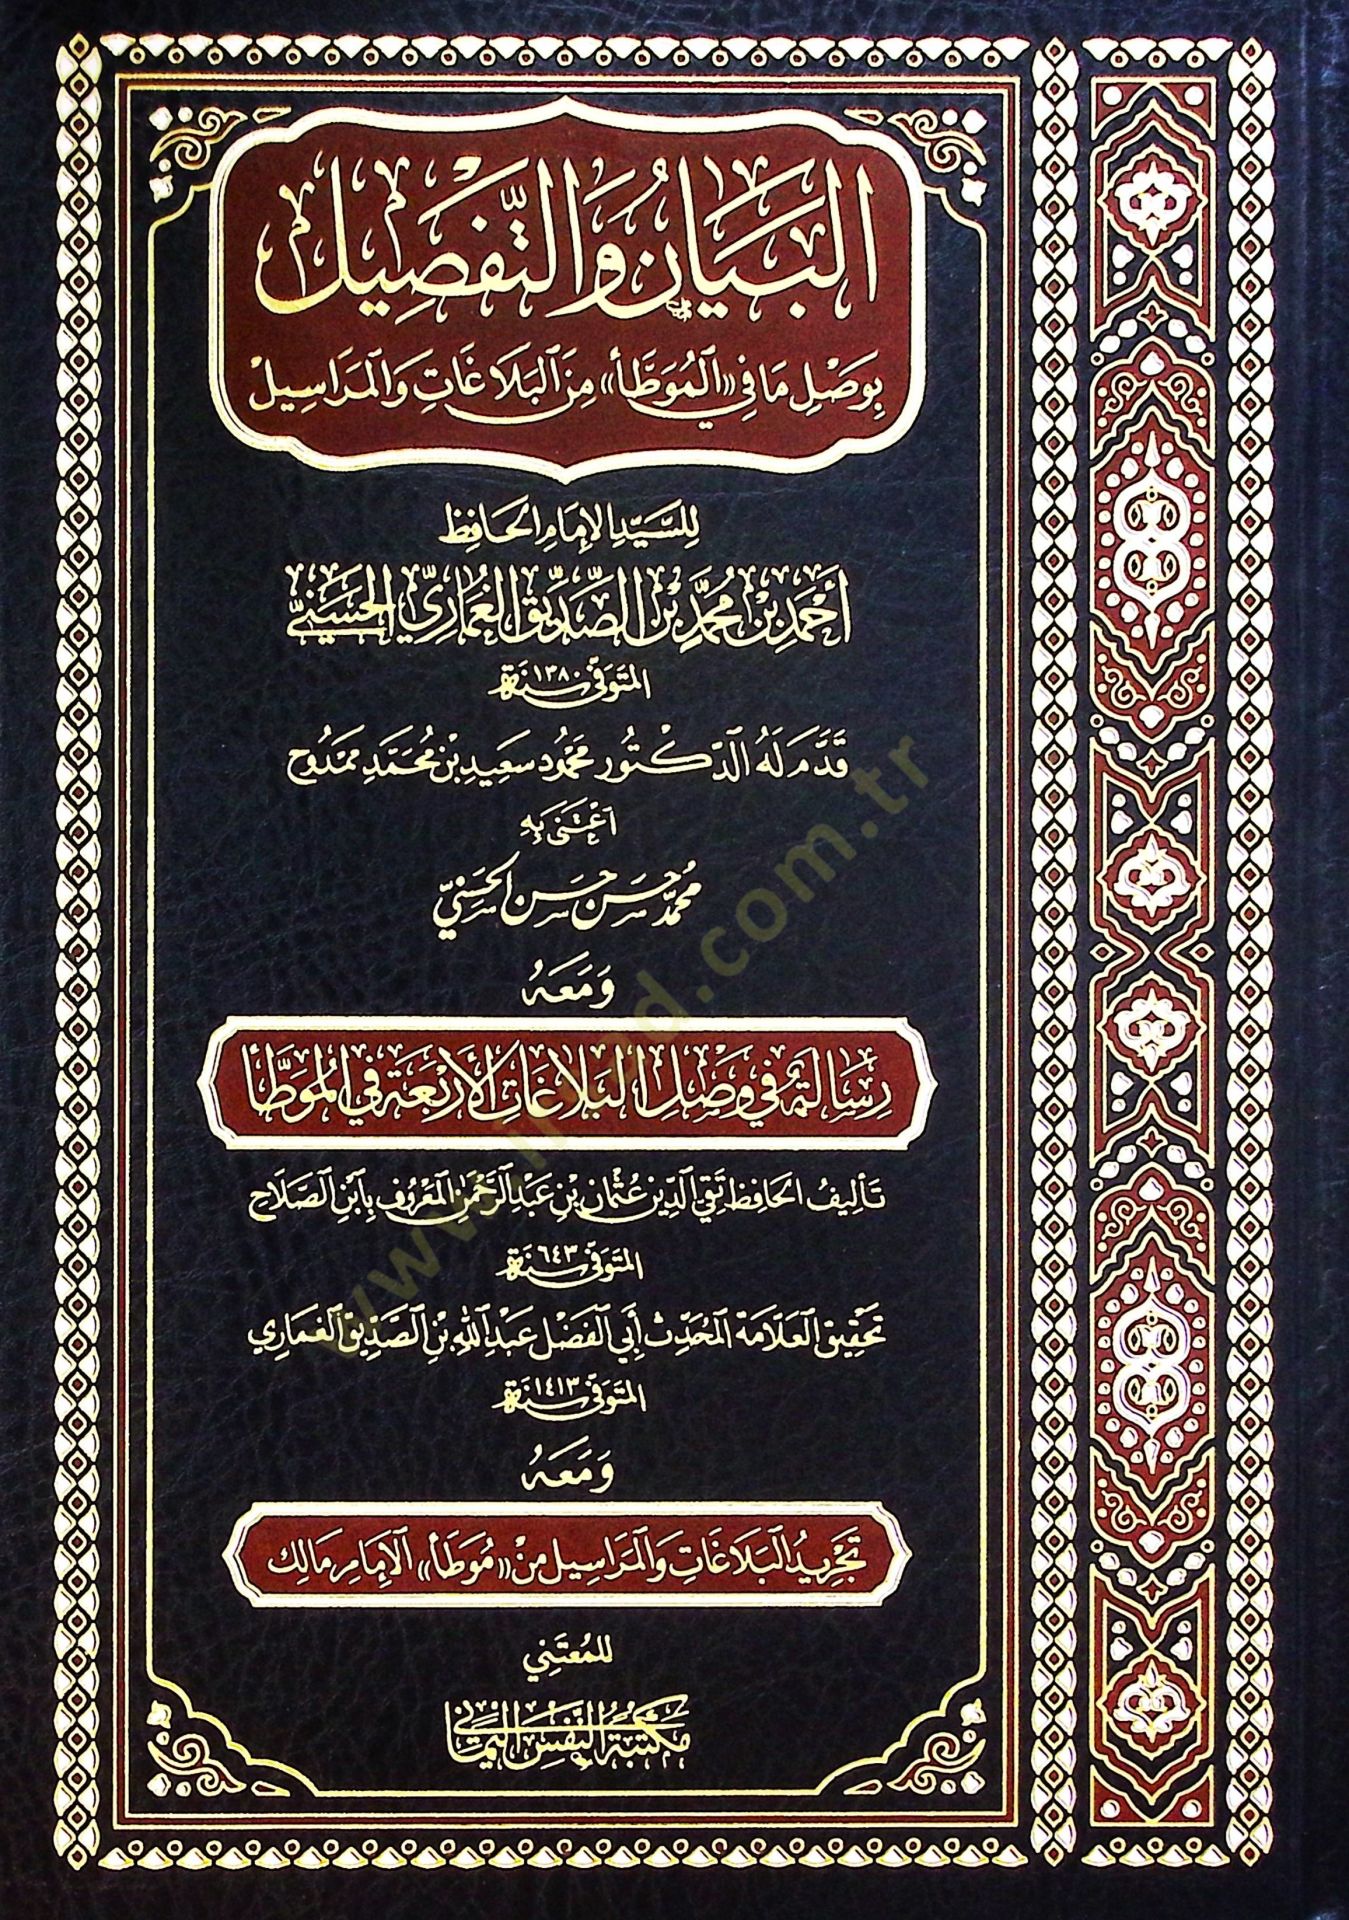 البَيَان وَالتَّفْصِيل
بِوَصْلِ مَا فِي «المُوَطَّأ» مِنَ البَلَاغَاتِ وَالمَرَاسِيل
لِلسَّيِّدِ الإِمَامِ الحَافِظِ
أَحْمَد بْن مُحَمَّد بْن الصِّدِّيق الغُمَارِيّ الحَسَنِيّ
المتوفى سنة ١٣٨٠هـ
قَدَّمَ لَهُ الدّكتُور محمُود سَعِيد بْن مُحَمَّد ممْدُوح
اعْتَنَى بِهِ
محمّد حسَن حسَن الحسَنيّ
وَمَعَهُ
رِسَالَةٌ فِي وَصْلِ البَلَاغَاتِ الأَرْبَعَة فِي المُوَطَّأ
تَأليفُ الحَافِظ تَقِي الدِّين عُثْمَان بْن عَبْدِ الرَّحْمَن المَعْرُوف بِابْنِ الصَّلَاح
المتوفى سنة ٦٤٣هـ
تَحْقِيق العَلَّامَة المُحَدِّث أَبِي الفَضْل عَبْد اللهِ بْن الصِّدِّيق الغُمَارِي
المتوفى سنة ١٤١٣هـ
وَمَعَهُ
تَجْرِيدُ البَلَاغَاتِ وَالمَرَاسِيل مِنْ «مُوَطَأ» الإِمَام مَالِك
لِلمُعْتَنِي
مكتبة النفس اليماني